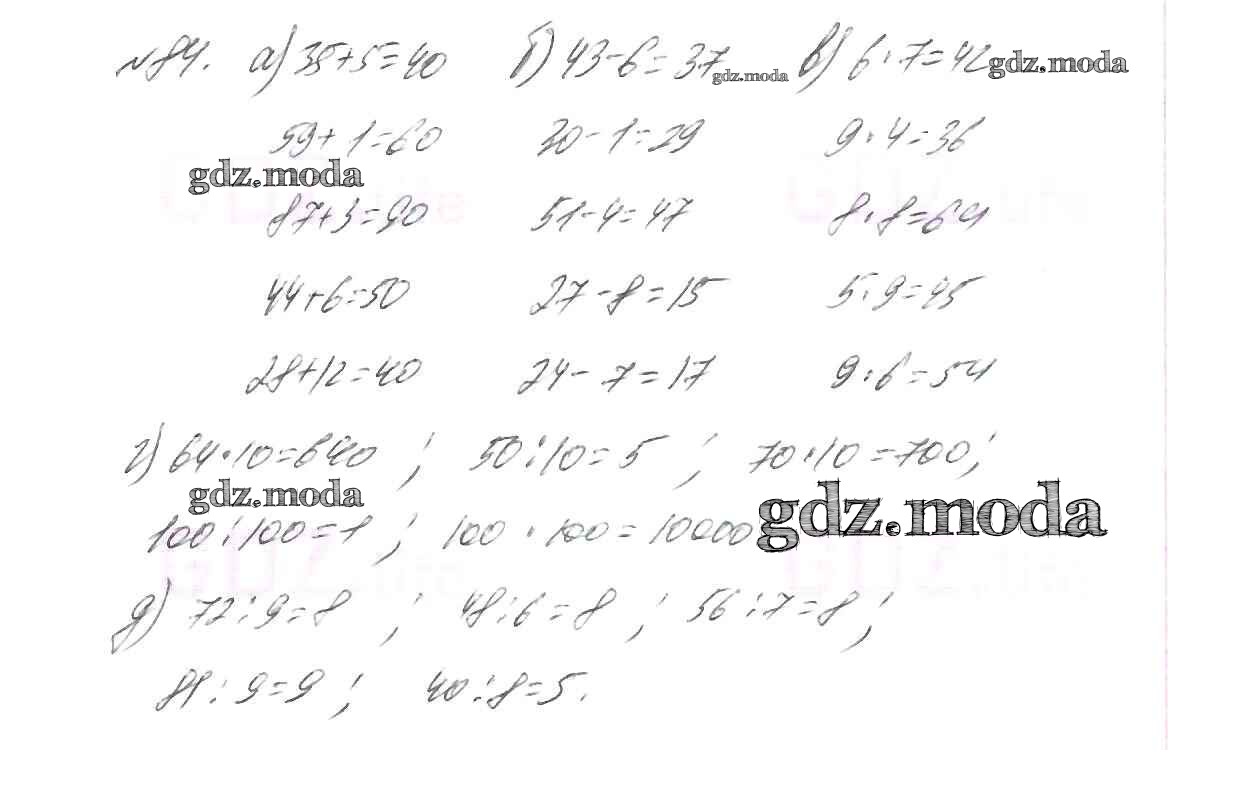 №84. а) 35+5=40 б) 43-6=37 gdz.moda в) 6·7=42 gdz.moda
59+1=60 30-1=29 9·4=36
gdz.moda
87+3=90 51-4=47 8·8=64
44+6=50 27-8=15 5·9=45
28+12=40 24-7=17 9·6=54
г) 64·10=640 ; 50:10=5 ; 70·10=700;
gdz.moda
100:100=1 ; 100·100=10000 gdz.moda
д) 72:9=8 ; 48:6=8 ; 56:7=8 ;
81:9=9 ; 40:8=5.